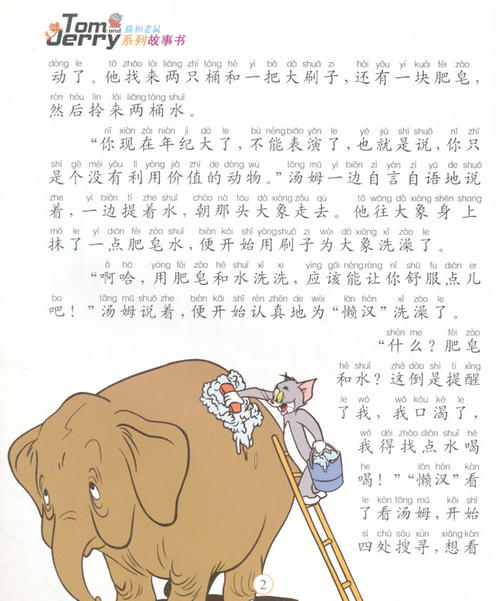 Tom and 猫和老鼠
Jerry 系列故事书
dòng le tā zhǎo lái liǎng zhī tǒng hé yì bǎ dà shuā zi hái yǒu yí kuài féi zào
动了。他找来两只桶和一把大刷子，还有一块肥皂，
rán hòu līn lái liǎng tǒng shuǐ
然后拎来两桶水。
nǐ xiàn zài nián jì dà le bù néng biǎo yǎn le yě jiù shì shuō nǐ zhǐ
“你现在年纪大了，不能表演了，也就是说，你只
shì gè méi yǒu lì yòng jià zhí de dòng wù tāng mǔ yì biān zì yán zì yǔ de shuō
是个没有利用价值的动物。”汤姆一边自言自语地说
zhe yì biān tí zhe shuǐ cháo nà tóu dà xiàng zǒu qù tā wǎng dà xiàng shēn shang
着，一边提着水，朝那头大象走去。他往大象身上
mǒ le yì diǎn féi zào shuǐ biàn kāi shǐ yòng shuā zi wèi dà xiàng xǐ zǎo le
抹了一点肥皂水，便开始用刷子为大象洗澡了。
ā hā yòng féi zào hé shuǐ xǐ xi yīng gāi néng ràng nǐ shū fu diǎn er
“啊哈，用肥皂和水洗洗，应该能让你舒服点儿
ba tāng mǔ shuō zhe biàn kāi shǐ rèn zhēn de wèi lǎn hàn xǐ zǎo le
吧！”汤姆说着，便开始认真地为“懒汉”洗澡了。
shén me féi zào
“什么？肥皂
hé shuǐ zhè dào shì tí xǐng
和水？这倒是提醒
le wǒ wǒ kǒu kě le
了我，我口渴了，
wǒ děi zhǎo diǎn shuǐ hē
我得找点水喝
he lǎn hàn kàn
喝！”“懒汉”看
le kàn tāng mǔ kāi shǐ
了看汤姆，开始
sì chù sōu xún xiǎng kàn
四处搜寻，想看
2